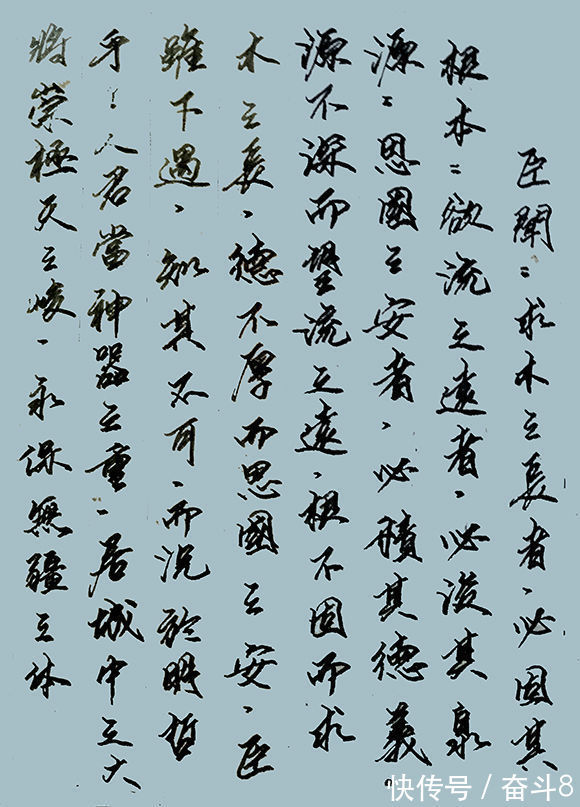 臣聞：求木之長者，必固其
根本：欲流之遠者，必浚其泉
源：思國之安者，必積其德義，
源不深而望流之遠，根不固而求
木之長，德不厚而思國之安，臣
雖下遇，知其不可，而況於明哲
乎！人君當神器之重，居城中之大
將崇極天之峻，永保無疆之休
快传号 / 奋斗8